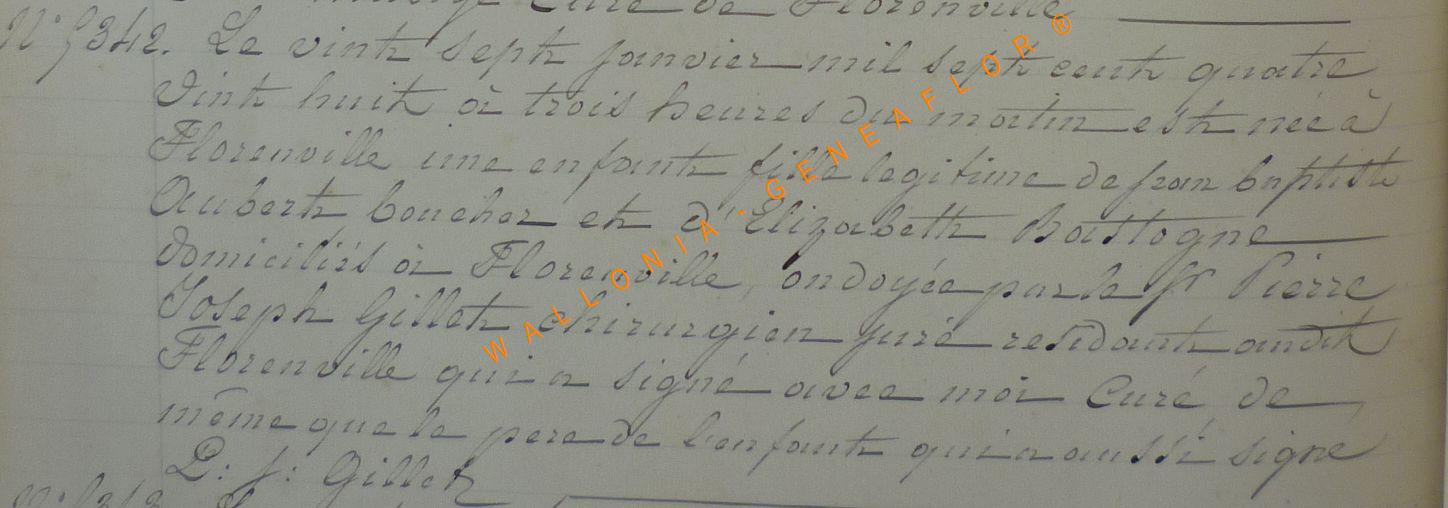 Curé de Florenville
N° 9342. Le vint sept janvier mil sept cent quatre
vint huit à trois heures du matin est née à
Florenville une enfant fille legitime de jean baptiste
Aubert boucher et d'Elizabeth Bastogne
domiciliés à Florenville, ondoyée par le Sr Pierre
Joseph Gillet chirurgien juré residant audit
Florenville qui a signé avec moi Curé, de
même que le pere de l'enfant qui a aussi signé
P: J: Gillet
WALLONIA - GENEAFLOR ®